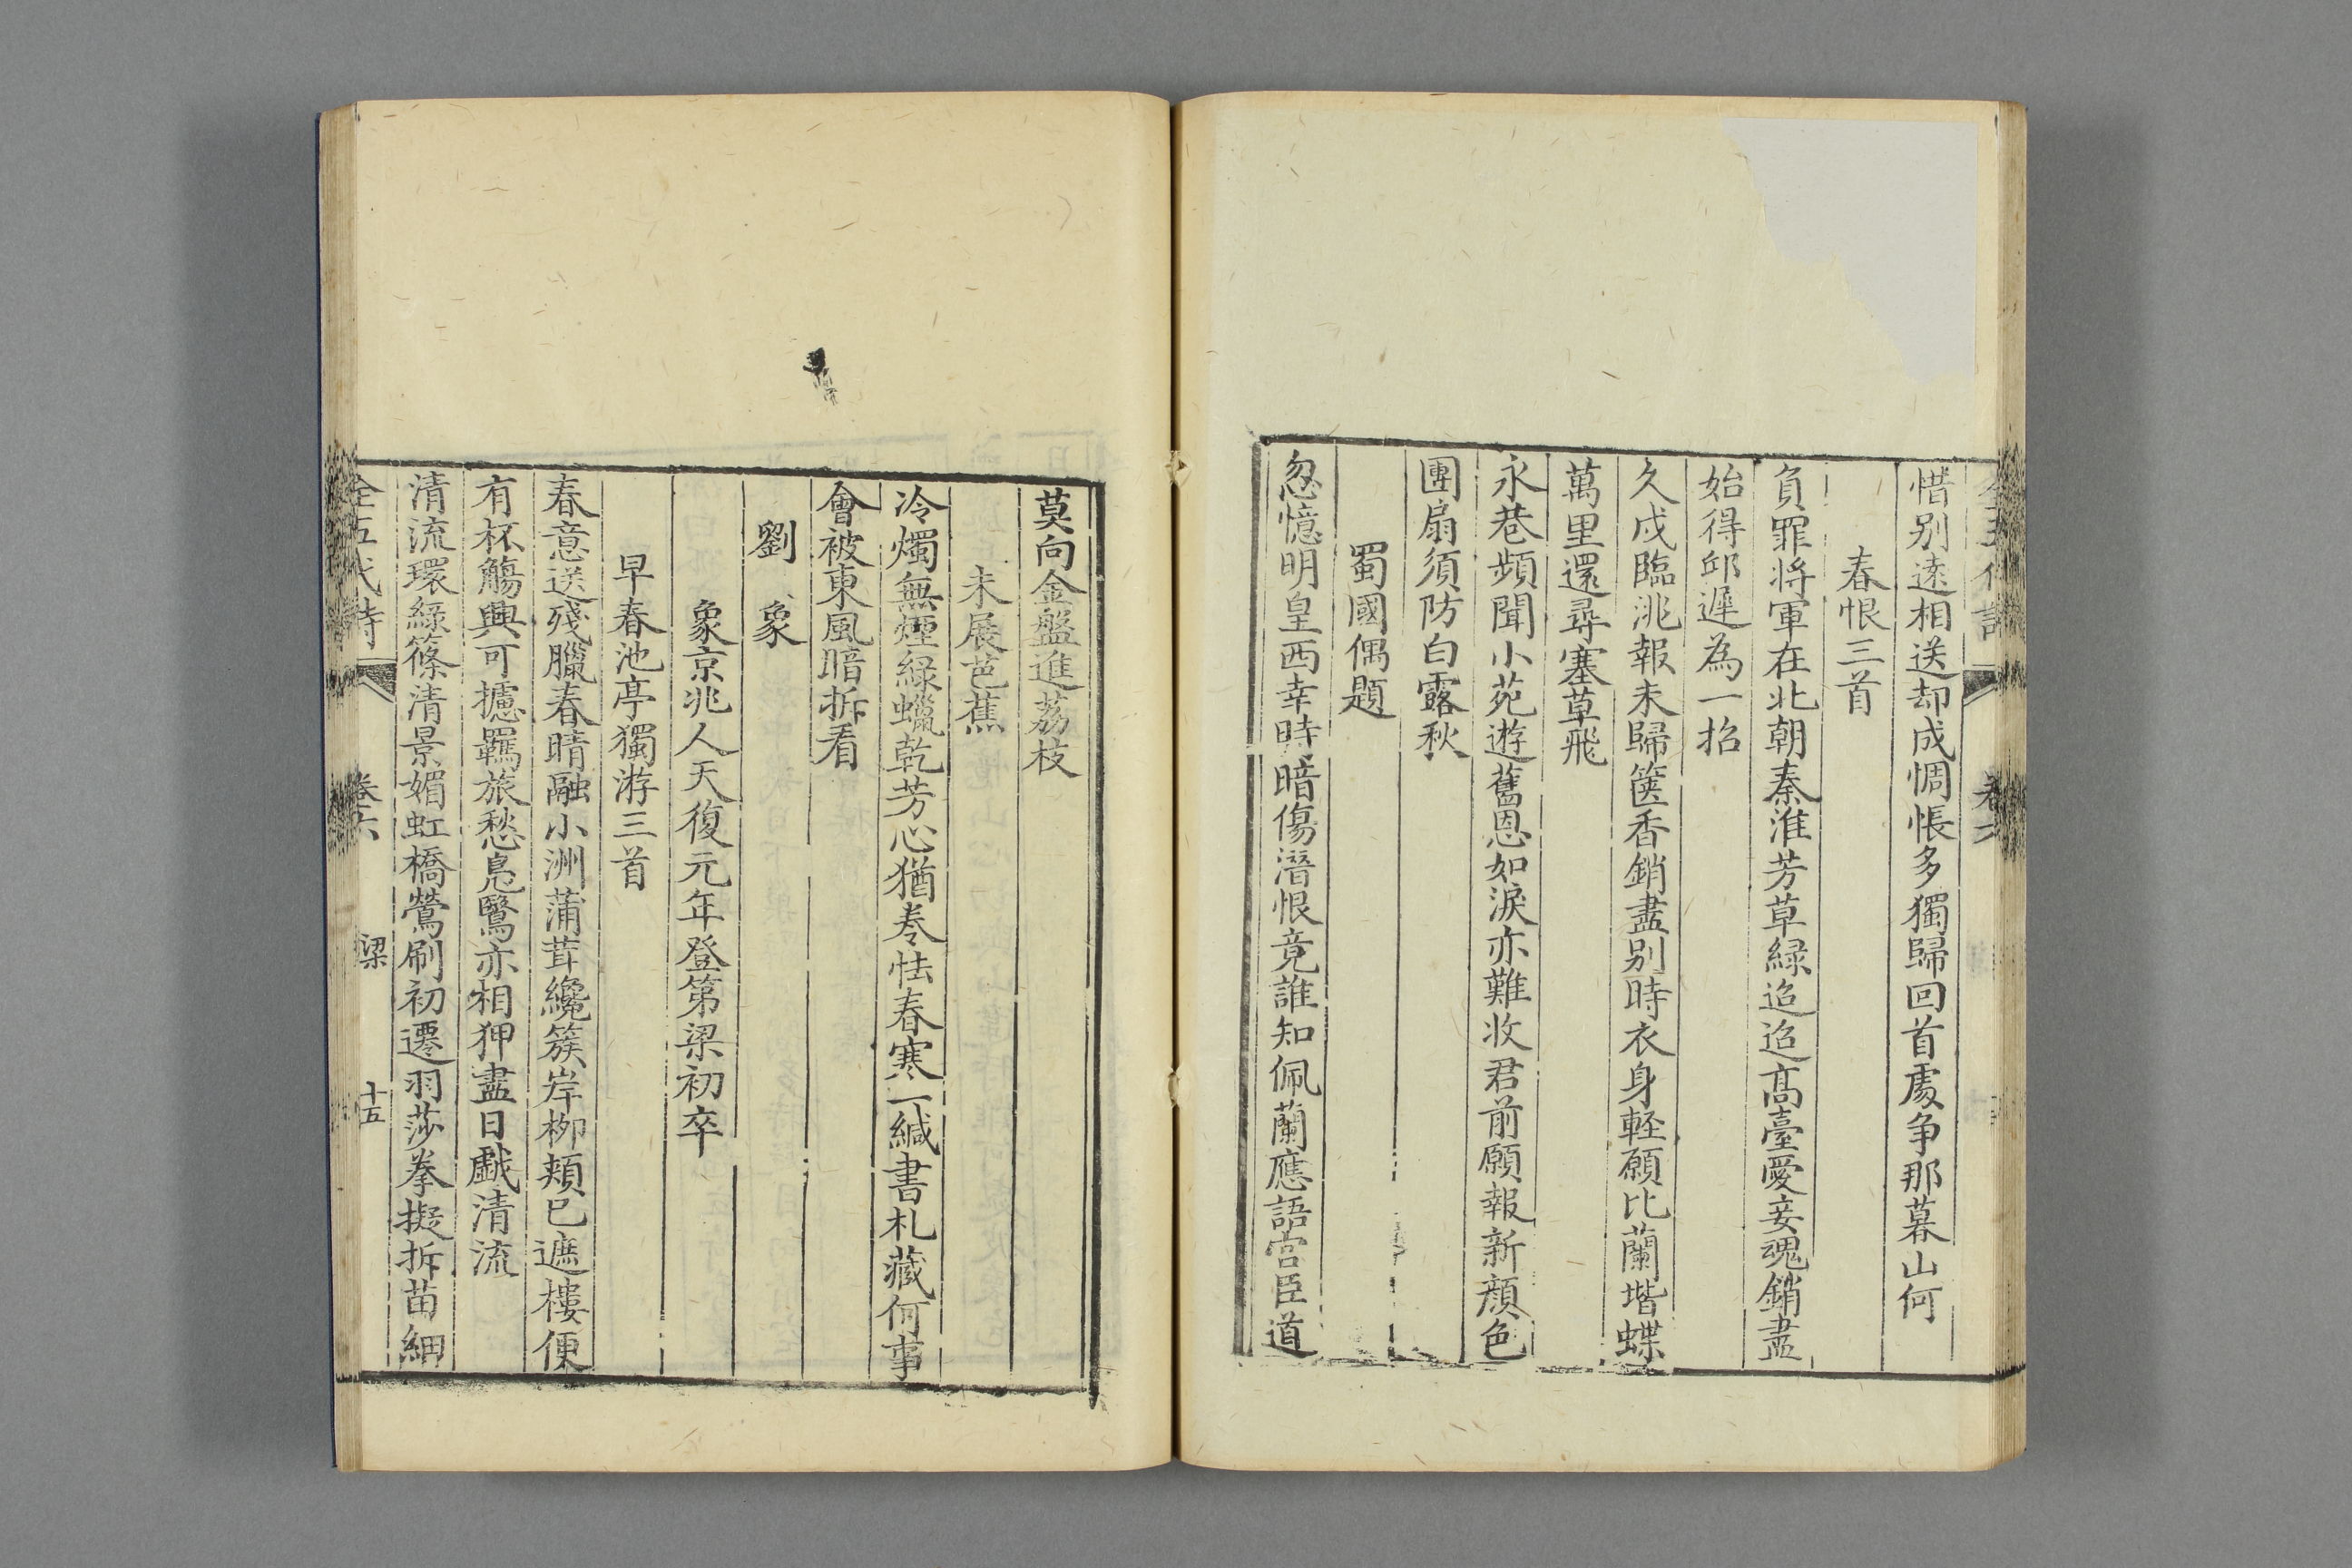 惜别逺相送却成惆悵多獨歸回首處争那暮山何
春恨三首
負罪将軍在北朝秦淮芳草緑迢迢髙臺愛妾魂銷盡
始得邱遲為一招
久戍臨洮報未歸篋香銷盡别時衣身輕願比蘭堦蝶
萬里還尋塞草飛
永巷頻聞小苑遊舊恩如淚亦難收君前願報新顔色
團扇須防白露秋
蜀國偶題
忽憶明皇西幸時暗傷潛恨竟誰知佩蘭應語宫臣道
莫向金盤進荔枝
未展芭蕉
冷燭無煙緑蠟乾芳心猶卷怯春寒一緘書札藏何事
會被東風暗拆看
劉象
象京兆人天復元年登第梁初卒
早春池亭獨游三首
春意送殘臘春晴融小洲蒲茸纔簇岸柳頰已遮樓便
有杯觴興可攄羈旅愁鳧鷖亦相狎盡日戱清流
清流環緑篠清景媚虹橋鶯刷初遷羽莎拳擬拆苗細
全五代詩 卷六 梁 十五